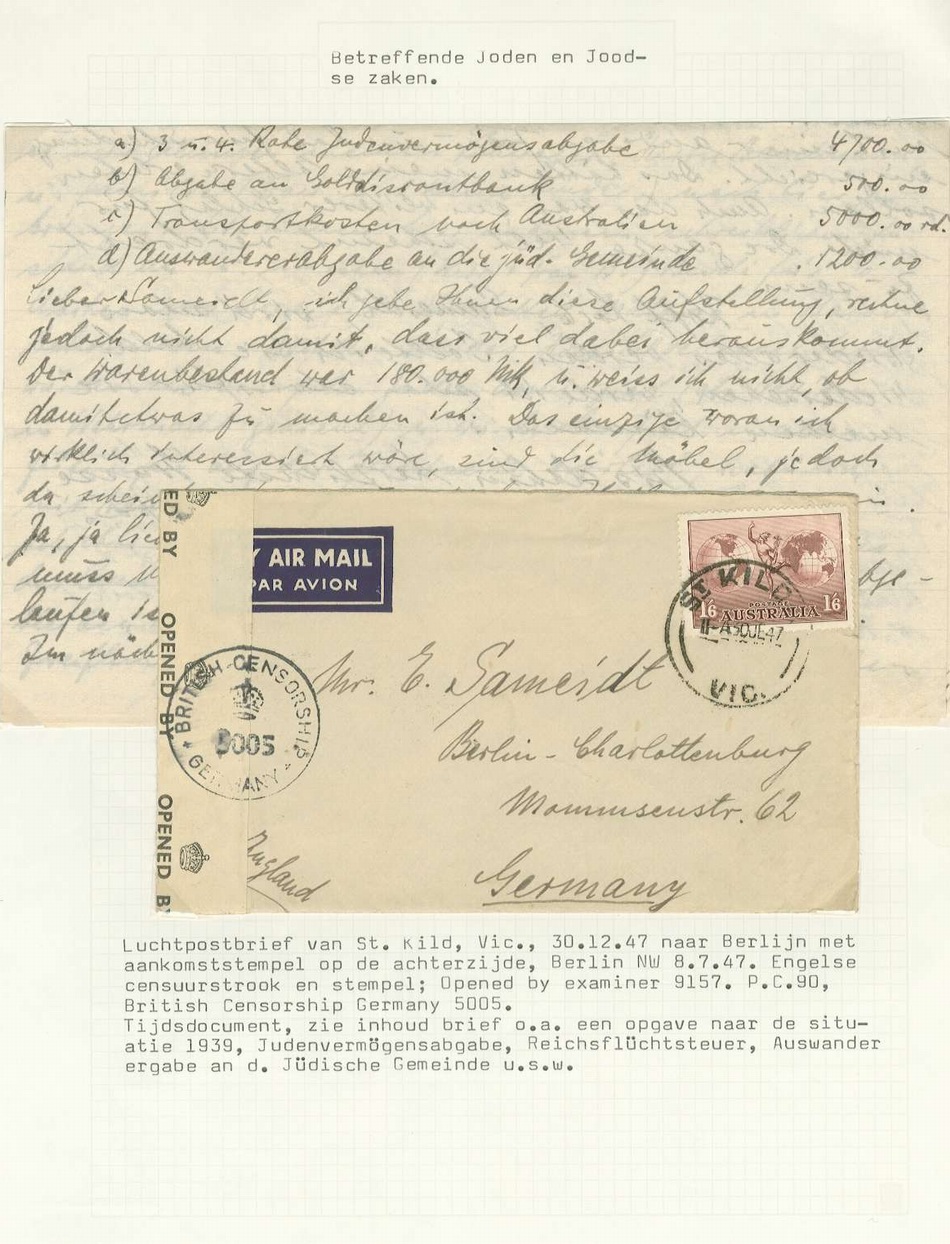 Betreffende Joden en Jood-
se zaken.
a) 3 u. 4. Rate Judenvermögensabgabe 4700.00
b) Abgabe an Golddiscontbank 500.00
c) Transportkosten nach Australien 5000.00 rd.
d) Auswandererabgabe an die jüd. Gemeinde 1200.00
Lieber Sameidt, ich gebe Ihnen diese Aufstellung, rechne
jedoch nicht damit, dass viel dabei herauskommt.
Der Warenbestand war 180.000 Mk, u. weiss ich nicht, ob
damit etwas zu machen ist. Das einzige woran ich
wirklich interessiert wäre, sind die Möbel, jedoch
da schein
Ja, ja lie
muss
laufen is
Im näch
ED BY
OPENED BY
OPENED BY
Y AIR MAIL
PAR AVION
BRITISH CENSORSHIP
5005
GERMANY
1/6 POSTAGE 1/6
AUSTRALIA
ST KILD
30JE47
VIC.
Mr. E. Sameidt
Berlin - Charlottenburg
Mommsenstr. 62
Germany
England
Luchtpostbrief van St. Kild, Vic., 30.12.47 naar Berlijn met
aankomststempel op de achterzijde, Berlin NW 8.7.47. Engelse
censuurstrook en stempel; Opened by examiner 9157. P.C.90,
British Censorship Germany 5005.
Tijdsdocument, zie inhoud brief o.a. een opgave naar de situ-
atie 1939, Judenvermögensabgabe, Reichsflüchtsteuer, Auswander
ergabe an d. Jüdische Gemeinde u.s.w.